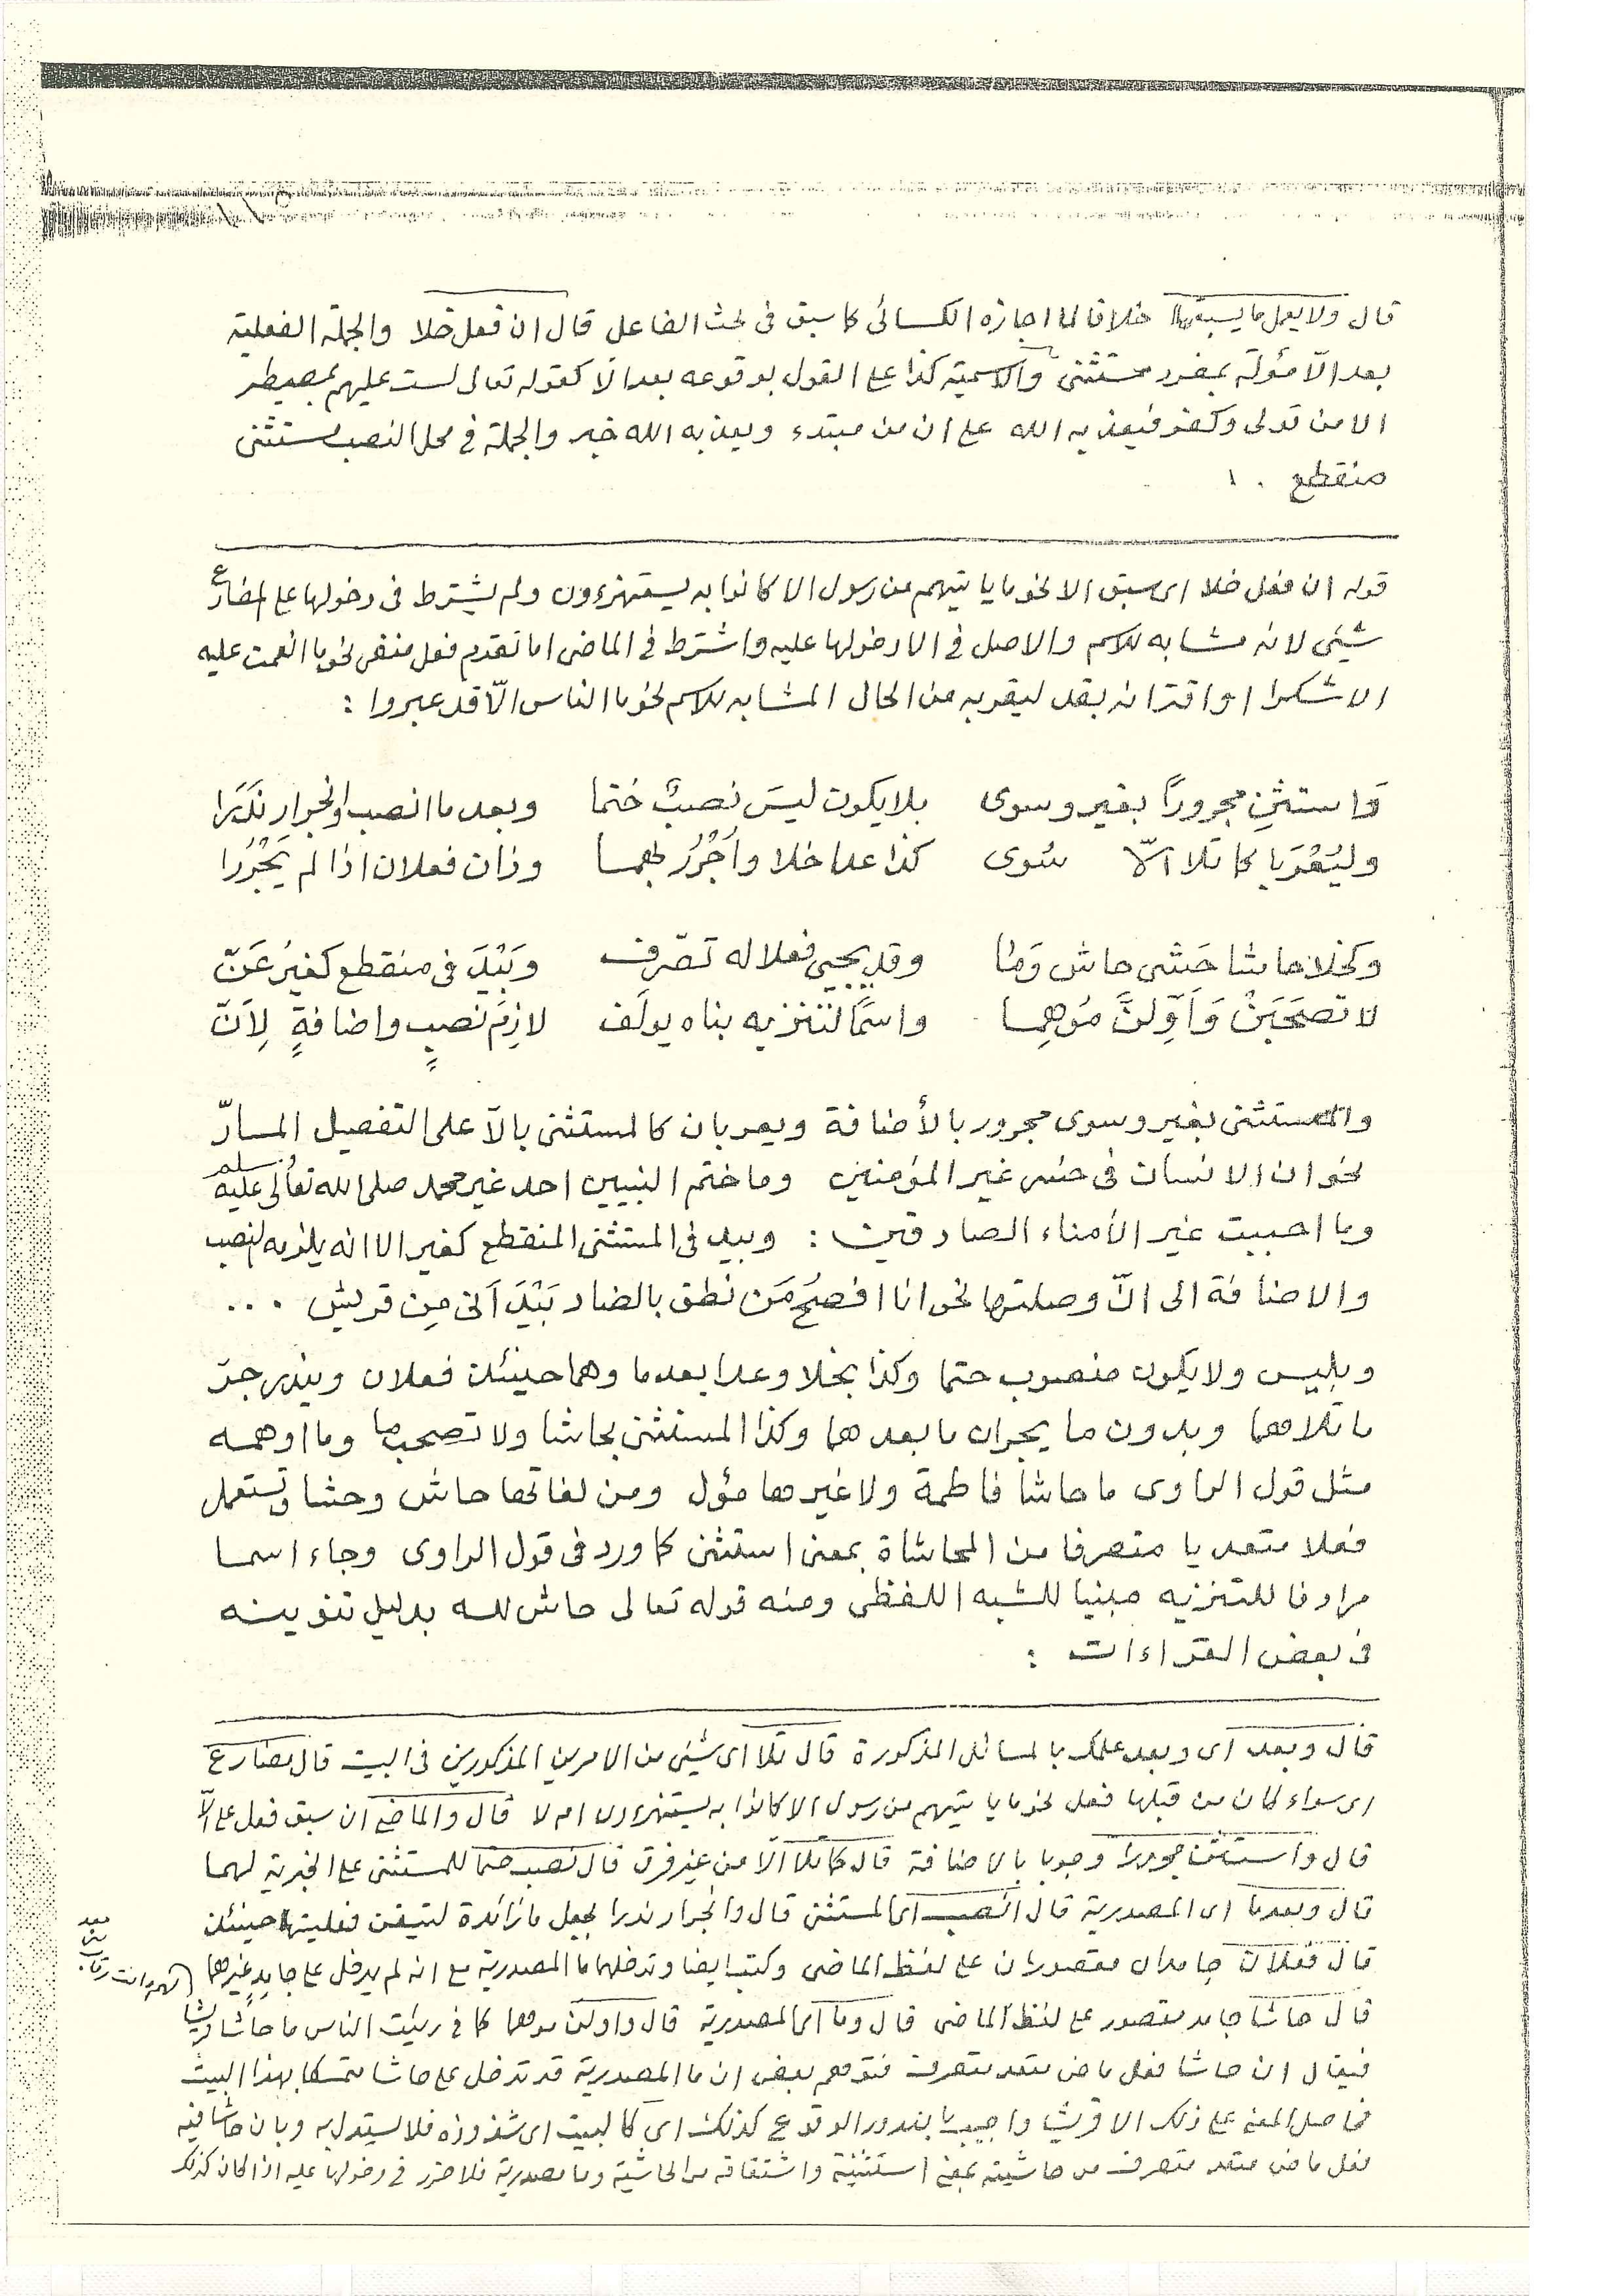 قال ولا يعمل ما يسبقها خلافا لما اجازه الكسائى كما سبق فى بحث الفاعل قال ان فعل خلا والجملة الفعلية
بعد الّا مؤولة بمفرد مستثنى والاسمية كذا على القول بوقوعه بعد الّا كقوله تعالى لست عليهم بمصيطر
الا من تولى وكفر فيعذبه الله على ان من مبتدء ويعذبه الله خبر والجملة فى محل النصب مستثنى
منقطع ٠ ١
قوله ان فعل خلا اى سبق الا نحو ما ياتيهم من رسول الا كانوا به يستهزءون ولم يشترط فى دخولها على المضارع
شيئى لانه مشابه للاسم والاصل فى الا دخولها عليه واشترط فى الماضى اما تقدم فعل منفى نحو ما انعمت عليه
الا شكر او اقترانه بقد ليقربه من الحال المشابه للاسم نحو ما الناس الّا قد عبروا :
وَاستثنِ مجروراً بغير وسوى بلا يكون ليسَ نصبٌ حتما وبعد ما انصب والجرار نَدَرَا
وليُعْرَبا كما تلا الّا سُوى كذا عدا خلا واَجْرُرْ بهما وذان فعلان اذا لم يَجْرُرا
وكخلا حاشا حَشَى حاش وَمَا وقد يجيى فعلا له تصّرف وبَيْدَ فى منقطع كغيرُ عَنّ
لا تصحَبَنْ وَاَوِّلَنَّ مُوهِما واسمًا لتنزيه بناه يولَف لازِمَ نصبٍ واضافةٍ لِاَنّ
والمستثنى بغير وسوى مجرور بالأضافة ويعربان كالمستثنى بالّا على التفصيل المسارّ
نحو ان الانسان فى خسر غير المؤمنين وما ختم النبيين احد غير محمد صلى الله تعالى عليه وسلم
وما احببت غير الأمناء الصادقين : وبيد فى المستثنى المنقطع كغير الا انه يلزمه النصب
والاضأفة الى انّ وصلتها نحو انا افصحُ مَن نطق بالضاد بَيْدَ اَنى مِن قريش ٠٠٠
وبليس ولا يكون منصوب حتما وكذا بخلا وعدا بعد ما وهما حينئذ فعلان ويندر جرّ
ما تلاهما وبدون ما يجران ما بعدهما وكذا المستثنى بحاشا ولا تصحب ما وما اوهمه
مثل قول الراوى ما حاشا فاطمة ولا غيرها مؤل ومن لغاتها حاش وحشا وتستعمل
فعلا متعديا متصرفا من المحاشاة بمعنى استثنى كما ورد فى قول الراوى وجاء اسما
مرادفا للتنزيه مبنيا للشبه اللفظى ومنه قوله تعالى حاش لله بدليل تنوينه
فى بعض القراءات :
قال وبعد اى وبعد علمك بالمسائل المذكورة قال تلا اى شيئى من الامرين المذكورين فى البيت قال مضارع
اى سواء كان من قبلها فعل نحو ما ياتيهم من رسول الا كانوا به يستهزءون ام لا قال والماضى ان سبق فعل على الّا
قال واستثن مجرورا وجوبا بالاضافة قال كما تلا الّا من غير فرق قال نصب حتما للمستثنى على الخبرية لهما
قال وبعد ما اى المصدرية قال انصب اى المستثنى قال والجرار ندرا بجعل ما زائدة لتيقن فعليتها حينئذ
قال فعلان جامدان مقصوران على لفظ الماضى وكتب ايضا وتدخلهما ما المصدرية مع انه لم يدخل على جامد غيرهما
قال حاشا جامد مقصور على لفظ الماضى قال وما اى المصدرية قال واولن موهما كما فى رئيت الناس ما حاشا قريشا
فيقال ان حاشا فعل ماض متعد متصرف فتوهم بعض ان ما المصدرية قد تدخل على حاشا متمسكا بهذا البيت
فحاصل المعنى على ذلك الا قريشا واجيب بندور الوقوع كذلك اى كالبيت اى شذوذه فلا يستدل به وبان حاشا فيه
فعل ماض متعد متصرف من حاشيته بمعنى استثنيته واشتقاقه من الحاشية وما مصدرية فلا ضرر فى دخولها عليه اذا كان كذلك